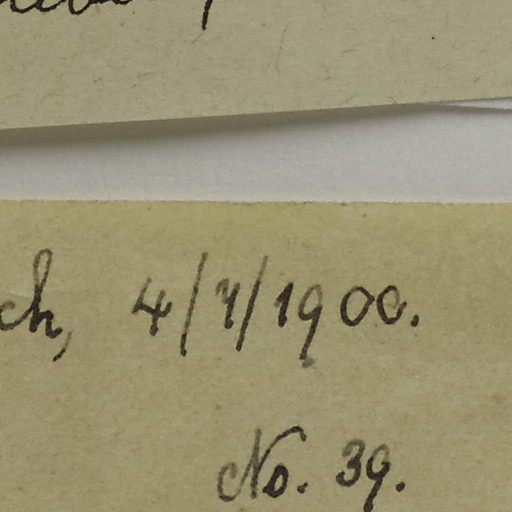 ch, 4/7/1900.
No. 39.